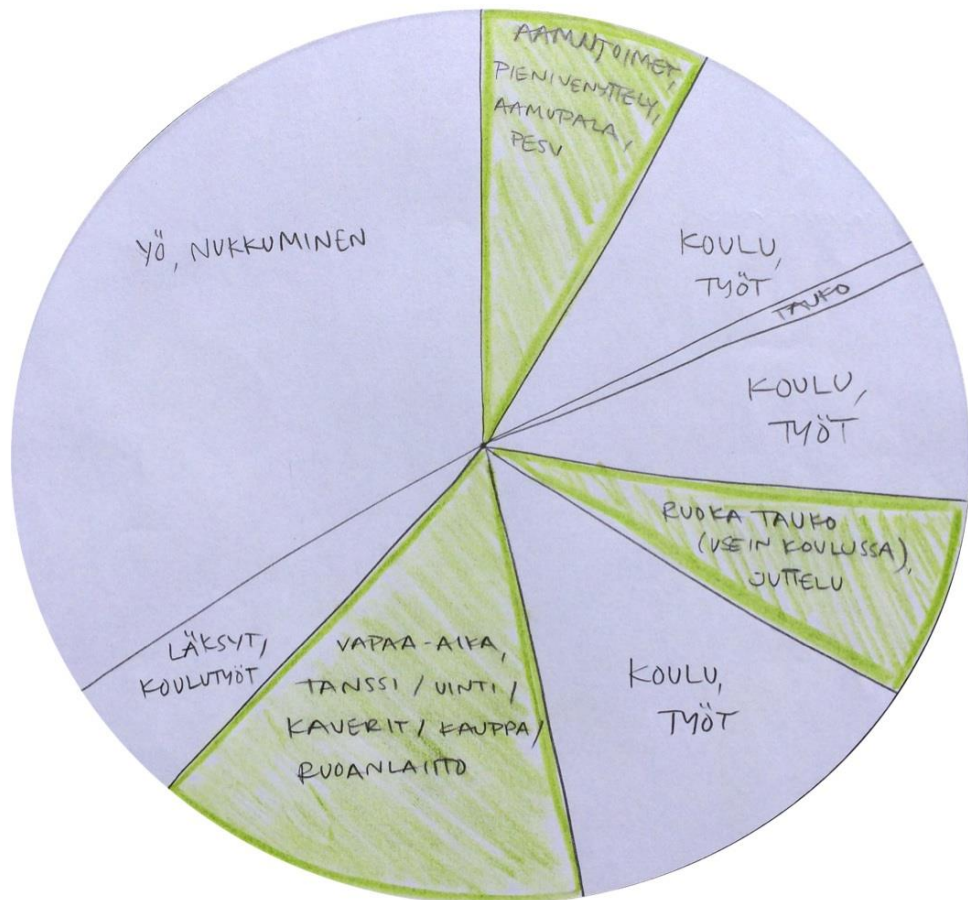 AAMUTOIMET,
PIENI VENYTTELY,
AAMUPALA,
PESU
KOULU,
TYÖT
TAUKO
KOULU,
TYÖT
RUOKA TAUKO
(USEIN KOULUSSA),
JUTTELU
KOULU,
TYÖT
VAPAA-AIKA,
TANSSI / UINTI /
KAVERIT / KAUPPA /
RUOANLAITTO
LÄKSYT,
KOULUTYÖT
YÖ, NUKKUMINEN